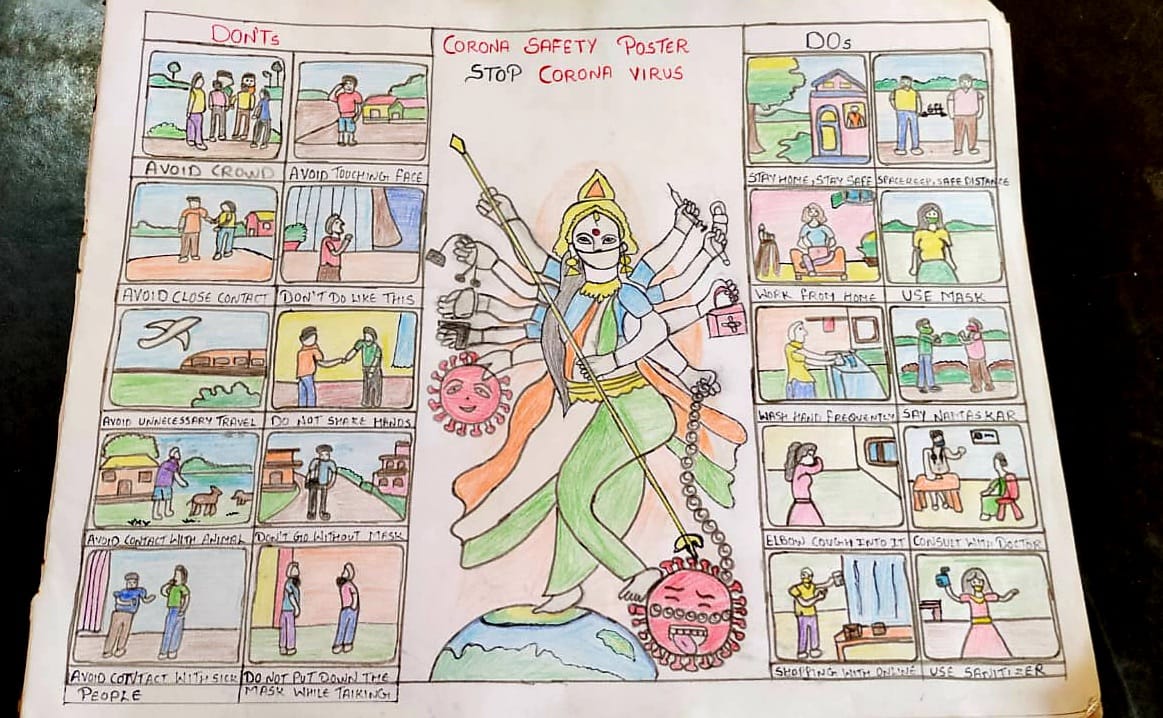 DON'Ts
AVOID CROWD
AVOID TOUCHING FACE
AVOID CLOSE CONTACT
DON'T DO LIKE THIS
AVOID UNNECESSARY TRAVEL
DO NOT SHAKE HANDS
AVOID CONTACT WITH ANIMAL
DON'T GO WITHOUT MASK
AVOID CONTACT WITH SICK
PEOPLE
DO NOT PUT DOWN THE
MASK WHILE TAIKING!
CORONA SAFETY POSTER
STOP CORONA VIRUS
DOs
6ft
STAY HOME, STAY SAFE
SPACEKEEP, SAFE DISTANCE
WORK FROM HOME
USE MASK
WASH HAND FREQUENTLY
SAY NAMASKAR
ELBOW COUGH INTO IT
CONSULT WITH DOCTOR
SHOPPING WITH ONLINE
USE SANITIZER